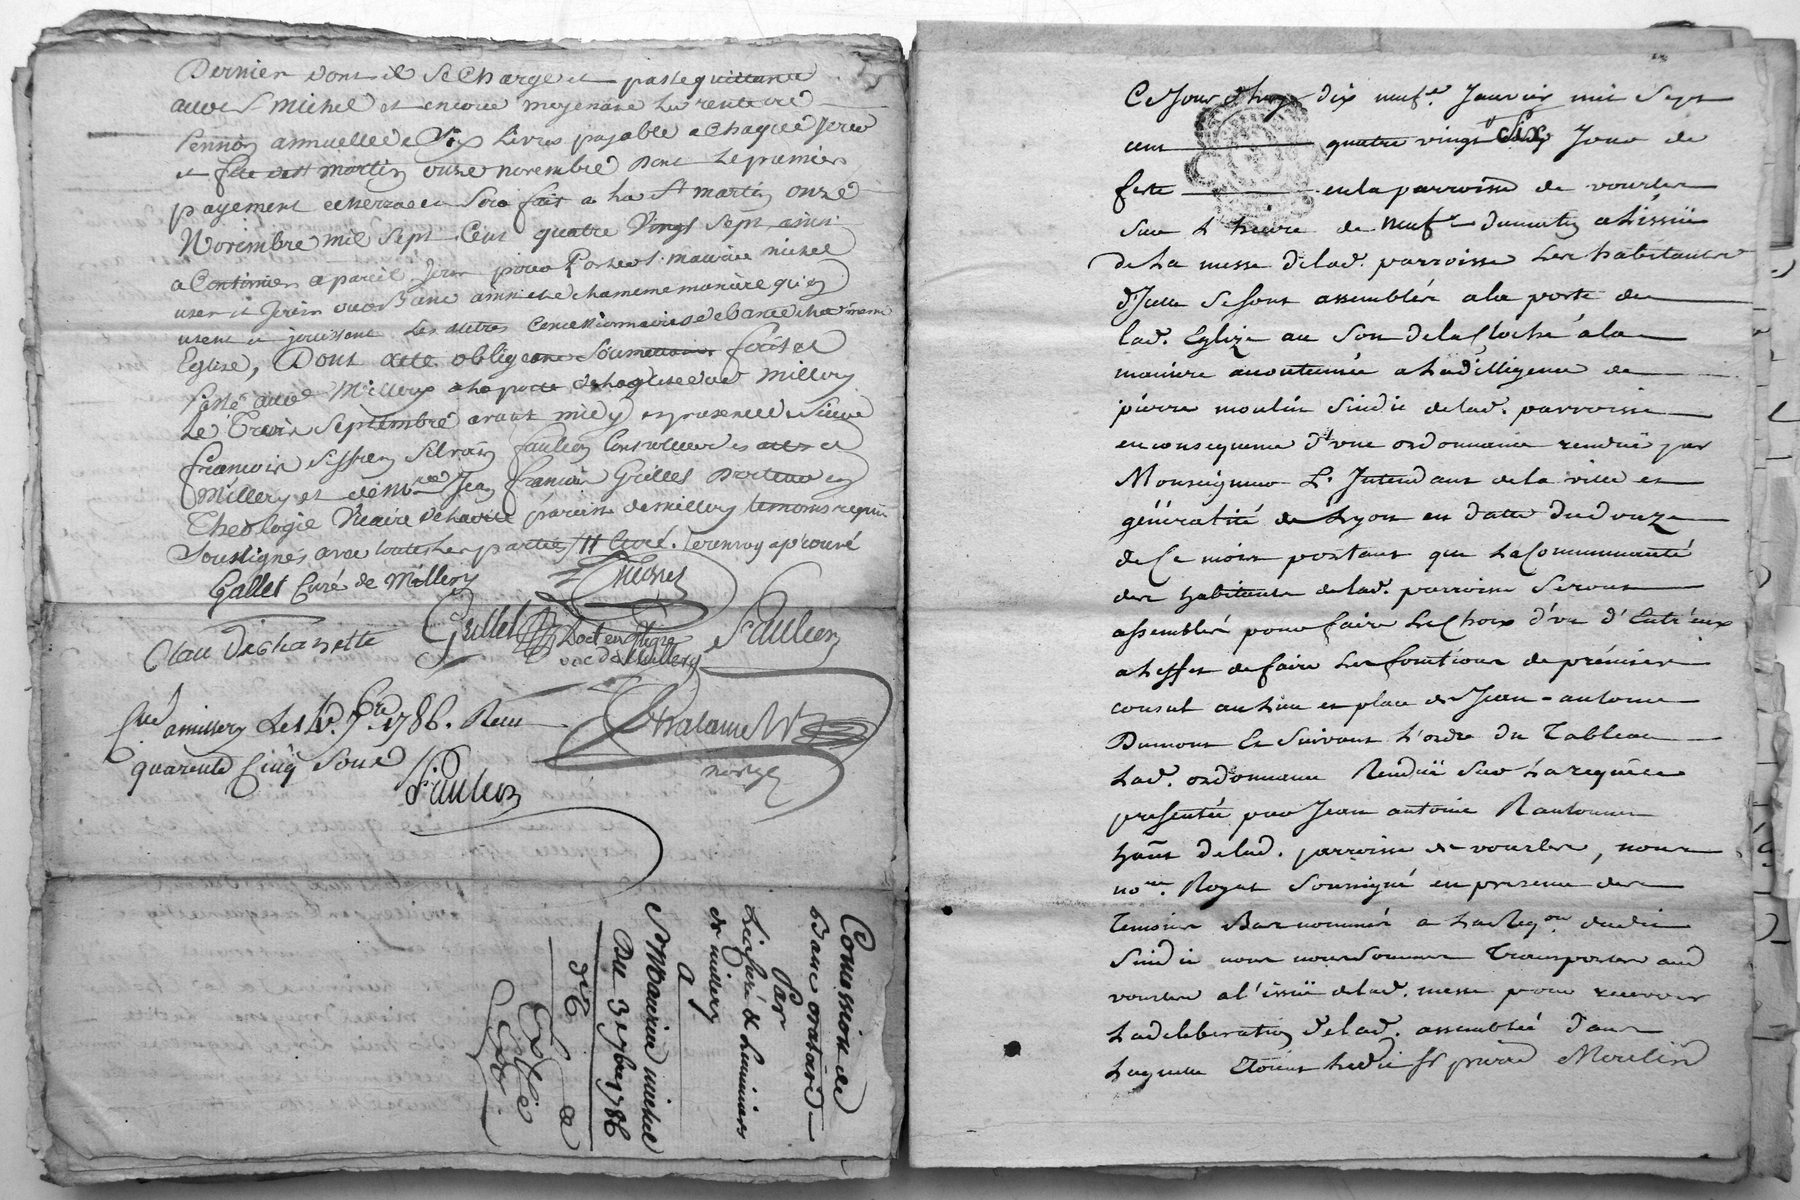 Dernier dont il se charge et passe quittance
audt Sr michel et encore moyenant la rente ou
Pension annuelle de six Livres payable a Chaque Jour
et fete de St martin onze novembre Dont le premier
payement echerra et se sera fait a la St martin onze
Novembre mil sept Cent quatre Vingt sept ainsi
a Continuer a pareil Jour pour Par led Sr maurice michel
user et Jouir dud Banc ainsi et de la meme maniere qu'en
usent et jouissent les autres Concessionnaires de bancs de lad meme
Eglise, Dont acte obligeant soumettant fait et
Passé aud Millery a la porte de l'eglise dud Millery
Le Trois Septembre avant midy en presence de Sieur
francois Faulcon Controlleur es actes et
Millery et de Mre Jean francois Grillet Docteur en
Theologie Vicaire de ladite paroisse de millery temoins requis
Soussignés avec toutes les parties
Gallet Curé de Millery
Michel
Grillet Doct en Theogie
vic de Millery
Faulcon
Clau Dechanette
Cué a millery Le 10 7bre 1786. Recu
quarente Cinq Sous
Faulcon
Chalamel
nore
Concession de
banc oratoire
Par
Les fabr & Luminiers
de millery
A
Sr Maurice michel
Du 3e 7bre 1786
Exp
Ce Jourd'huy dix neufe. Janvier mil sept
cent quatre vingt Six Jour de
feste en la parroisse de vourles
Sur L'heure de neufe dumatin a L'issüe
de La messe de lad. parroisse Les habitants
d'Jcelle Se sont assemblés a la porte de
lad. Eglize au Son de la Cloche a la
maniere accoutumée a La dilligence de
pierre moulin Sindic de lad. parroisse
en consequence d'une ordonnance rendüe par
Monseigneur L'Intendant de la ville et
généralité de Lyon en datte du douze
de Ce mois portant que La Communauté
des habitants de lad. parroisse Seront
assemblés pour faire Le Choix d'un d'Entr'eux
a L'effet de faire Les fonctions de premier
consul au Lieu et place de Jean-antoine
Dumont Et Suivant L'ordre du Tableau
Lad. ordonnance Rendüe Sur La requête
presentée par Jean antoine
hant de lad. parroisse de vourles, nous
nore Royal Soussigné en presence des
Temoins Bas nommés a La Reqon dudit
Sindic nous nous Sommes Transportés aud
vourles a l'issüe de lad. messe pour recevoir
La deliberation de lad. assemblée dans
Laquelle Etoient Ledit Sr pierre Moulin